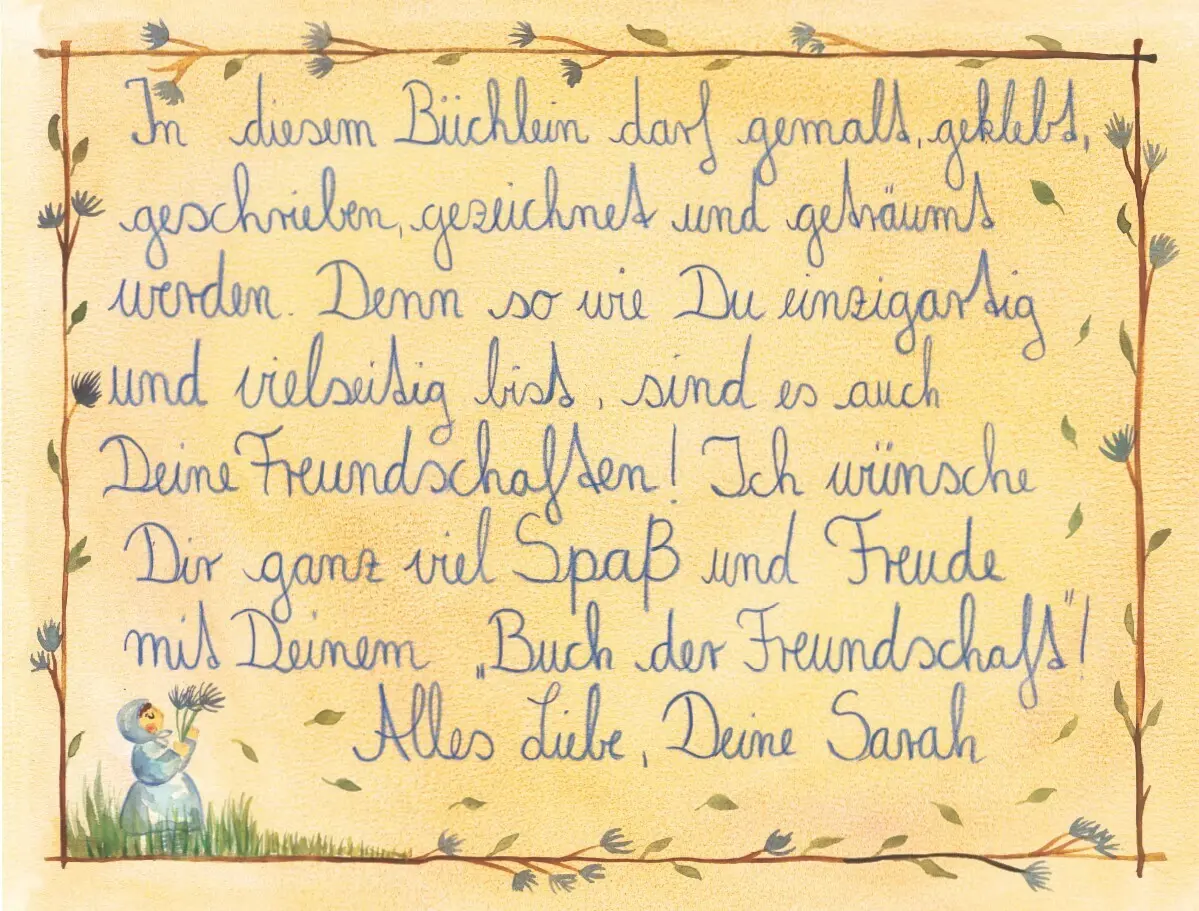 In diesem Büchlein darf gemalt, geklebt,
geschrieben, gezeichnet und geträumt
werden. Denn so wie Du einzigartig
und vielseitig bist, sind es auch
Deine Freundschaften! Ich wünsche
Dir ganz viel Spaß und Freude
mit Deinem „Buch der Freundschaft"!
Alles Liebe, Deine Sarah